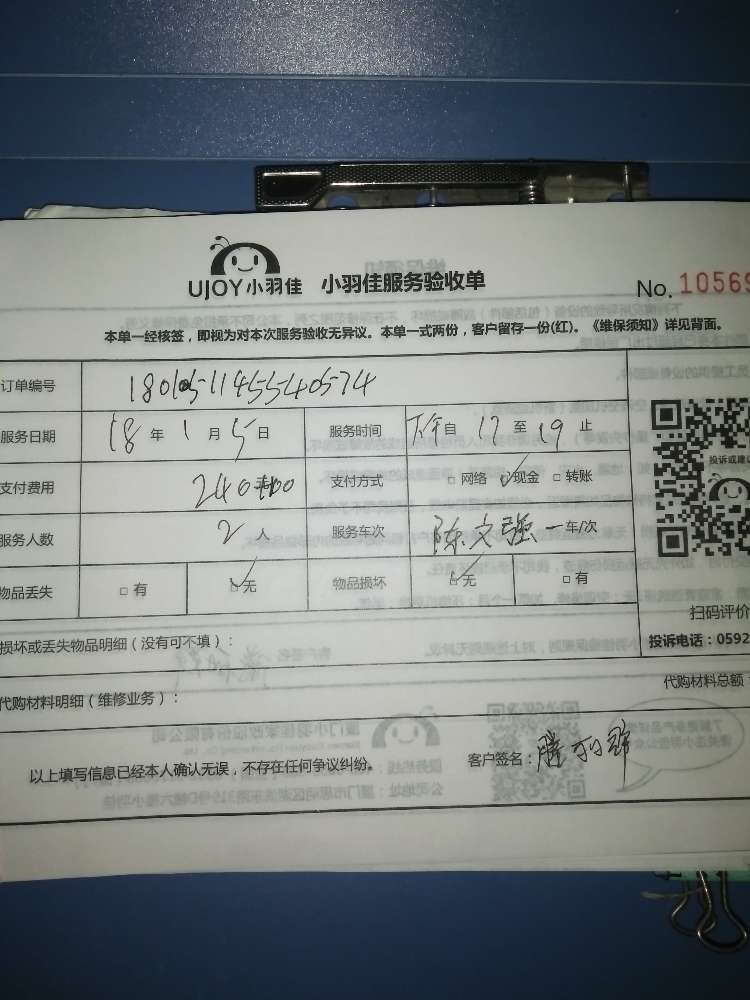 UJOY小羽佳 小羽佳服务验收单 No. 10569
本单一经核签，即视为对本次服务验收无异议。本单一式两份，客户留存一份(红)。《维保须知》详见背面。
订单编号
服务日期 18 年 1 月 5 日 服务时间 下午自 17 至 19 止
支付费用 240 支付方式 □ 网络 ☑现金 □ 转账
服务人数 2 人 服务车次 陈文强 一 车/次
物品丢失 □ 有 ☑无 物品损坏 ☑无 □ 有
投诉或建议
扫码评价
损坏或丢失物品明细（没有可不填）：
投诉电话：0592
代购材料明细（维修业务）：
代购材料总额
以上填写信息已经本人确认无误，不存在任何争议纠纷。
客户签名：